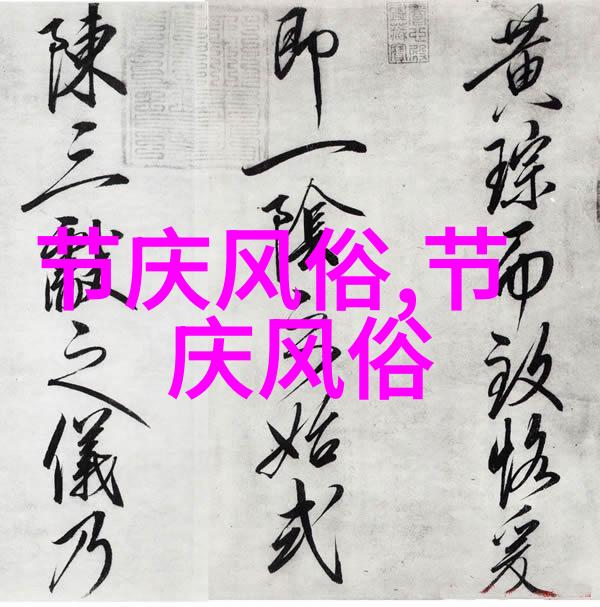 节庆风俗,节
庆风俗
黄琮而致恪爰
即一陰始式
陳三獻之儀乃